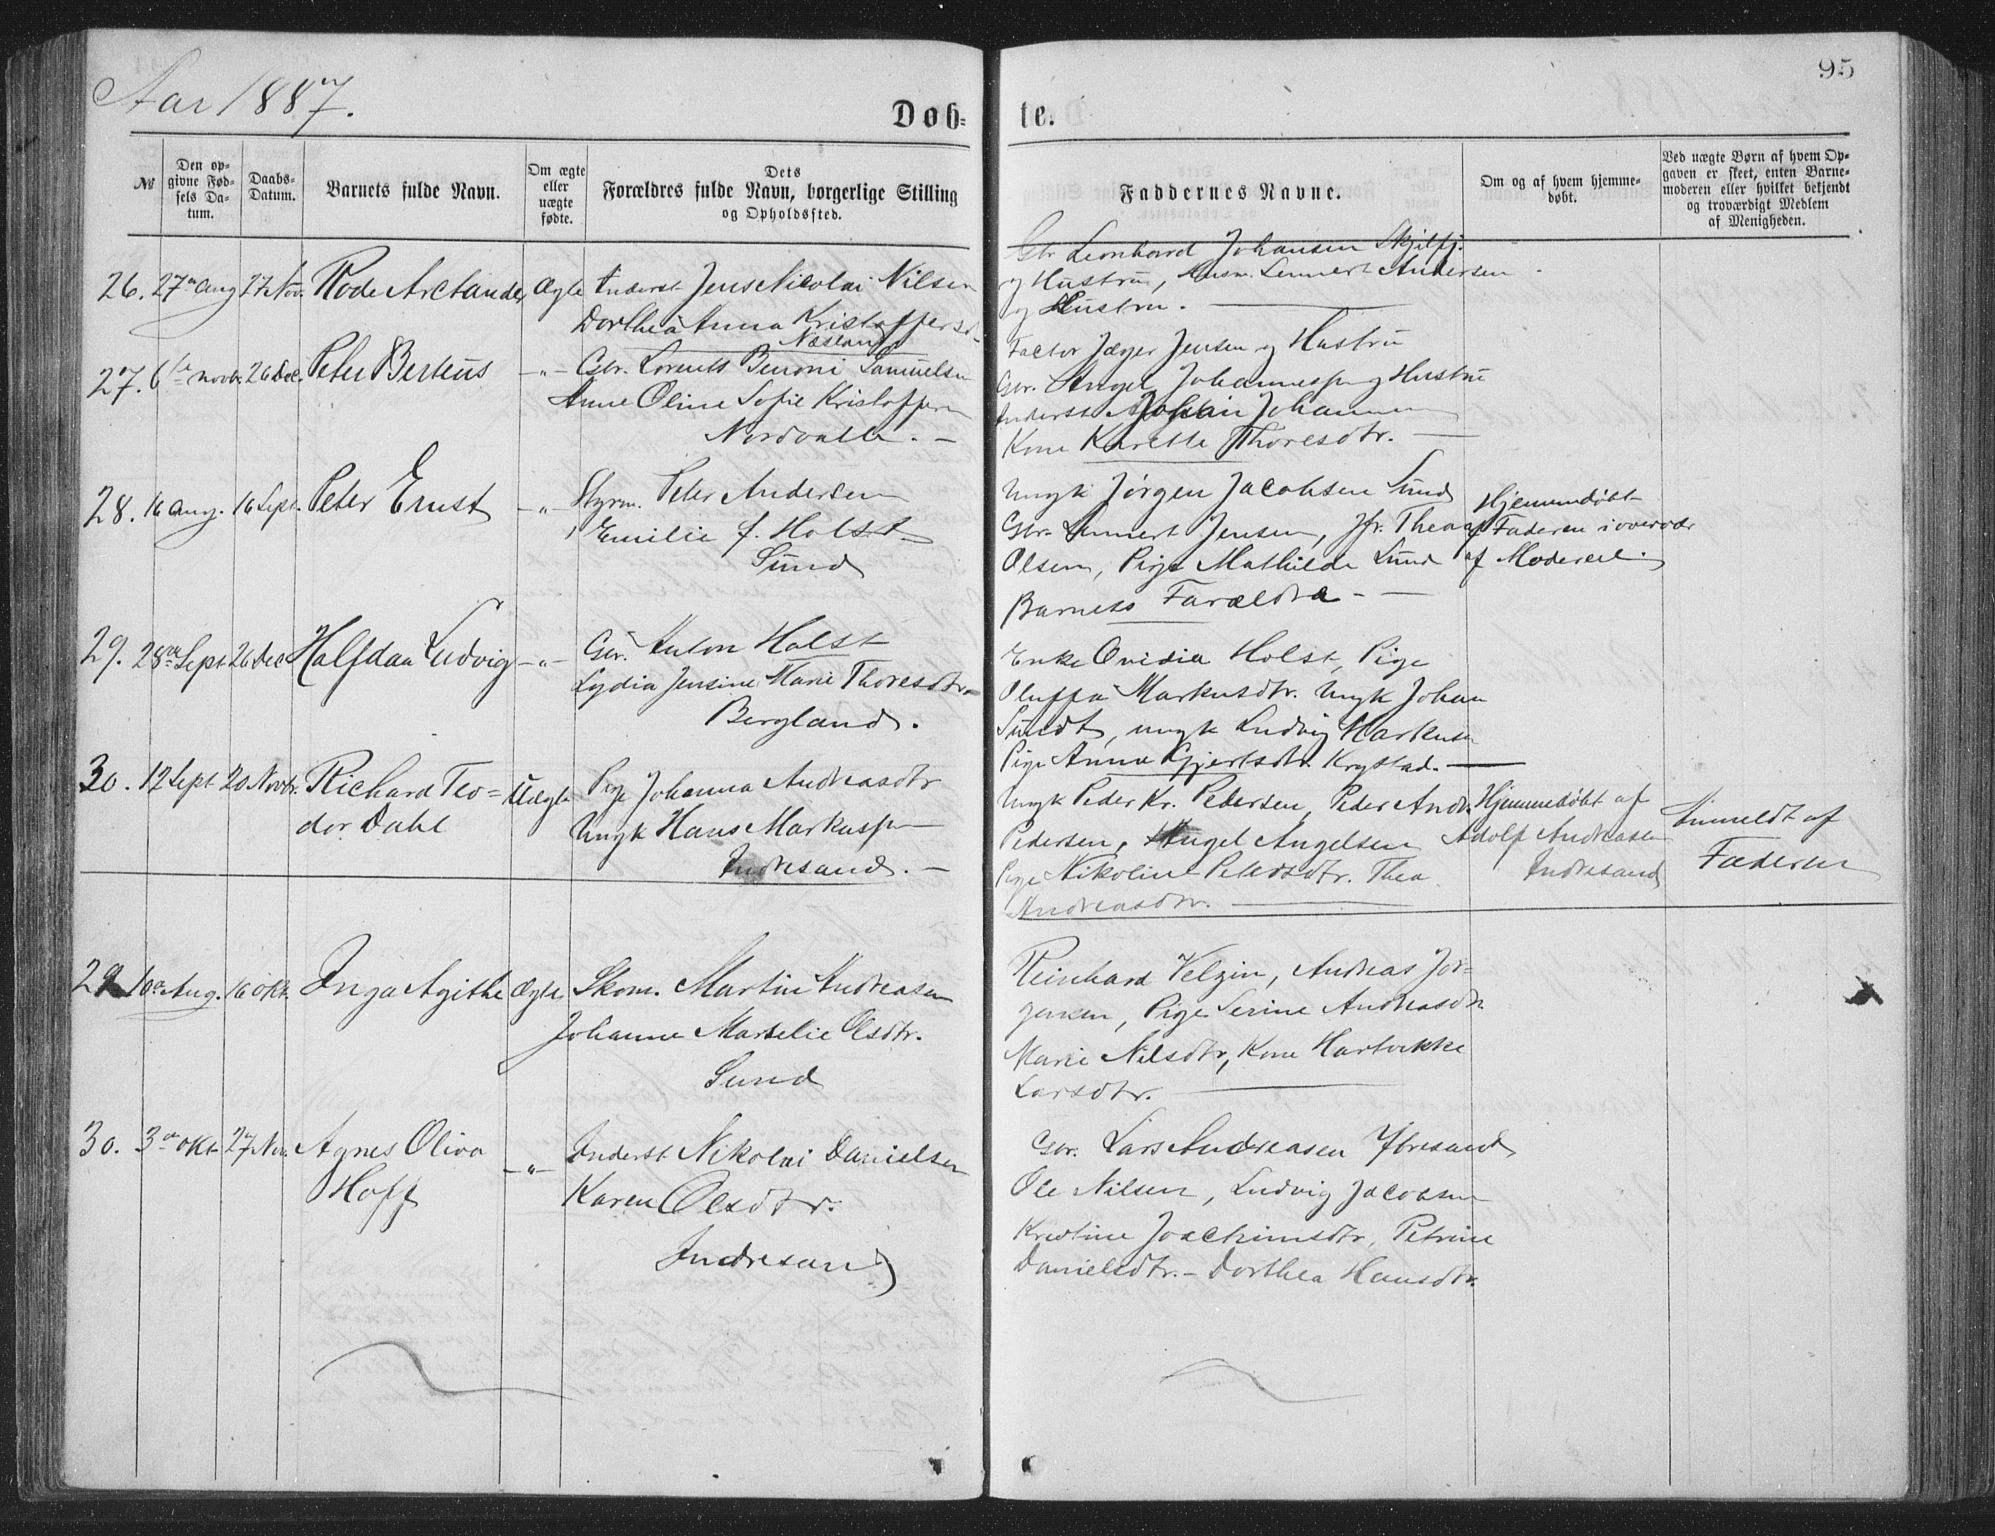 Aar 1887.
95
Døb-
te.
№
Den op-
givne Fød-
sels Da-
tum.
Daabs-
Datum.
Barnets fulde Navn.
Om ægte
eller
uægte
fødte.
Dets
Forældres fulde Navn, borgerlige Stilling
og Opholdssted.
Faddernes Navne.
Om og af hvem hjemme-
døbt.
Ved uægte Børn af hvem Op-
gaven er skeet, enten Barne-
moderen eller hvilket bekjendt
og troværdigt Medlem
af Menigheden.
26. 27de Aug 27 Nov. Rode Arctander Ægte Inderst Jens Nicolai Nilsen
Dorthea Anna Kristoffersd.
Næsland
Gbr Leonhard Johansen Skjelfj.
og Hustru, Husm. Lennert Andersen
og Hustru.
27. 6te Novb. 26 Dec. Peter Berteus -"- Gbr. Lorents Benoni Samuelsen
Anne Oline Sofie Kristoffersen
Nordvalle.
Factor Jæger Jensen og Hustru
Gbr. Angel Johannessen og Hustru
Inderst Johan Johannessen
Kone Karelle Thoresdtr.
28. 16 Aug. 16 Sept. Peter Ernst -"- Styrm. Peter Andersen
Emilie f. Holst
Sund
Ungk Jørgen Jacobsen Sund
Gbr. Lennert Jensen, Jfr. Thea
Olsen, Pige Mathilde Sund
Barnets Forældre
Hjemmedøbt
af Faderen i overvær
af Moderen.
29. 28de Sept 26 Dec Halfdan Ludvig -"- Gbr. Anton Holst
Lydia Jensine Marie Thoresdtr.
Bergland.
Enke Ovidia Holst, Pige
Oluffa Markusdtr. Ungk Johan
Sundt, ungk Ludvig Markusen
Pige Anna Gjertsdtr. Krystad.
30. 12 Sept 20 Novbr. Richard Teo-
dor Dahl
Uægte Pige Johanna Andreasdtr
Ungk Hans Markussen
Indresand.
Ungk Peder Kr. Pedersen, Peder Andr.
Pedersen, Angel Angelsen
Pige Nikoline Petersdtr. Thea
Andreasdtr.
Hjemmedøbt af
Adolf Andreasen
Indresand
Anmeldt af
Faderen
29 10de Aug. 16 Okt. Inga Agithe Ægte Skom. Martin Andreasen
Johanne Marselie Olsdtr.
Sund
Reinhard Velzin, Andreas Jør-
gensen, Pige Serine Andreasdtr.
Marie Nilsdtr, Kone Hartvikke
Larsdtr.
30. 3de Okt 27 Nov. Agnes Oliva
Hoff
-"- Inderst Nikolai Danielsen
Karen Olsdtr.
Indresand
Gbr. Lars Andreasen Ytresand
Ole Nilsen, Ludvig Jacobsen
Kristine Joachimsdtr, Petrine
Danielsdtr. - Dorthea Hansdtr.